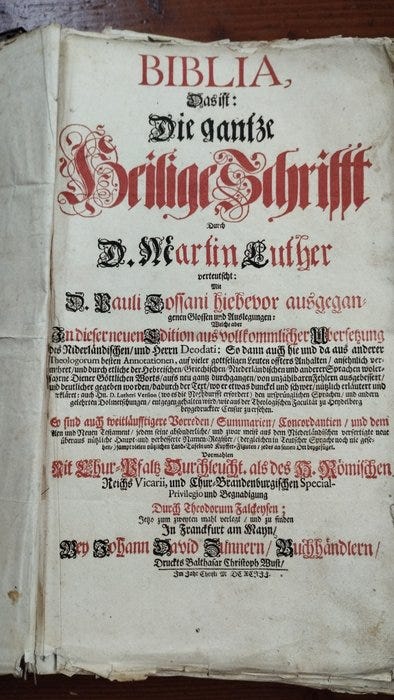 BIBLIA,
Das ist:
Die gantze
Heilige Schrifft
Durch
D. Martin Luther
verteutscht:
Mit
D. Pauli Tossani hiebevor ausgegan-
genen Glossen und Auslegungen:
Welche aber
In dieser neuen Edition aus vollkommlicher Ubersetzung
des Niderländischen/ und Herrn Deodati; So dann auch hie und da aus anderer
Theologorum besten Annotationen, auf vieler gottseligen Leuten öffters Anhalten/ ansehnlich ver-
mehret/ und durch etliche der Hebreischen/ Griechischen/ Niderländischen und anderer Sprachen woler-
fahrne Diener Göttlichen Worts/ aufs neu gantz durchgangen/ von unzahlbaren Fehlern ausgebessert/
und deutlicher gegeben worden/ dadurch der Text/ wo er etwas dunckel und schwer/ nützlich erläutert und
erkläret: auch Hn. D. Lutheri Version/ den ursprünglichen Sprachen/ und andern
gelehrten Dolmetschungen/ wie auch der Theologischen Facultät zu Heydelberg
beygedruckter Censur zu ersehen.
Es sind auch weitläufftigere Vorreden/ Summarien/ Concordantien/ und dem
Alten und Neuen Testament/ jedem seine absonderliche/ und zwar meist aus dem Niderländischen verfertigte neue
überaus nützliche Haupt- und verbesserte Namen-Register/ dergleichen in Teutscher Sprache noch nie gese-
hen/ sampt vielen nützlichen Land-Tafeln und Kupffer-Figuren/ jedes an seinen Ort beygefüget.
Vormahlen
Mit Chur-Pfaltz Durchleucht. als des H. Römischen
Reichs Vicarii, und Chur-Brandenburgischen Special-
Privilegio und Begnadigung
Durch Theodorum Falckeysen;
Jetzo zum zweyten mahl verlegt/ und zu finden
In Franckfurt am Mayn/
Bey Johann David Zunnern/ Buchhändlern/
Druckts Balthasar Christoph Wust/
Im Jahr Christi M DC XCIII.